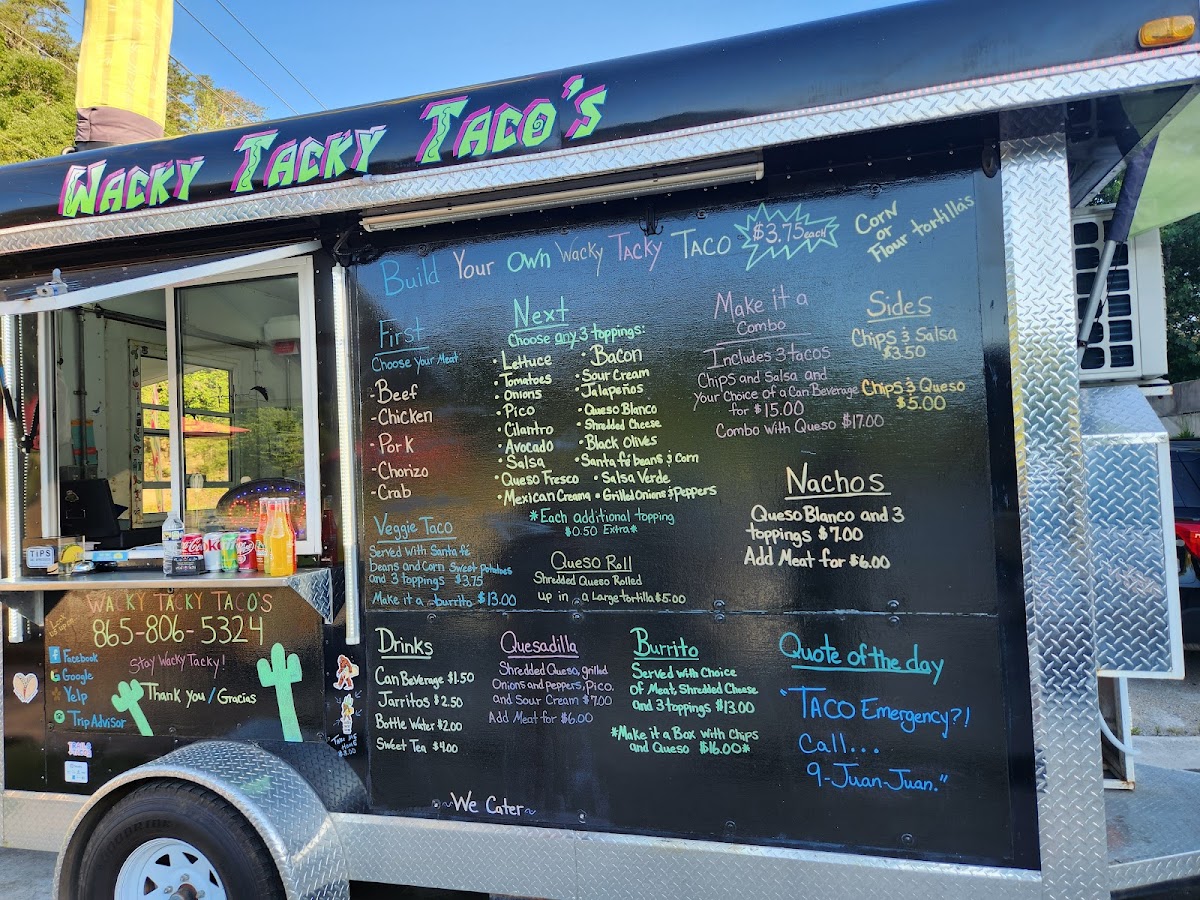 Wacky Tacky Taco's
Build Your Own Wacky Tacky Taco $3.75 each
Corn
or
Flour tortilla's
First
Choose Your Meat
-Beef
-Chicken
-Pork
-Chorizo
-Crab
Veggie Taco
Served with Santa fé
beans and Corn Sweet Potatoes
and 3 toppings $3.75
Make it a burrito $13.00
Next
Choose any 3 toppings:
• Lettuce
• Tomatoes
• Onions
• Pico
• Cilantro
• Avocado
• Salsa
• Queso Fresco
• Mexican Crema
• Bacon
• Sour Cream
• Jalapeños
• Queso Blanco
• Shredded Cheese
• Black Olives
• Santa fé beans & Corn
• Salsa Verde
• Grilled Onions & Peppers
*Each additional topping
$0.50 Extra*
Queso Roll
Shredded Queso Rolled
up in a Large tortilla $5.00
Make it a
Combo
Includes 3 tacos
Chips and Salsa and
Your Choice of a Can Beverage
for $15.00
Combo with Queso $17.00
Sides
Chips & Salsa
$3.50
Chips & Queso
$5.00
Nachos
Queso Blanco and 3
toppings $7.00
Add Meat for $6.00
Drinks
Can Beverage $1.50
Jarritos $2.50
Bottle Water $2.00
Sweet Tea $4.00
Quesadilla
Shredded Queso, grilled
Onions and peppers, Pico.
and Sour Cream $7.00
Add Meat for $6.00
Burrito
Served with Choice
of Meat, Shredded Cheese
and 3 toppings $13.00
*Make it a Box with Chips
and Queso $16.00*
Quote of the day
"Taco Emergency?!
Call...
9-Juan-Juan."
~We Cater~
TiPS
Wacky Tacky Taco's
865-806-5324
Facebook
Google
Yelp
Trip Advisor
Stay Wacky Tacky!
Thank you / Gracias
Take Me
Home